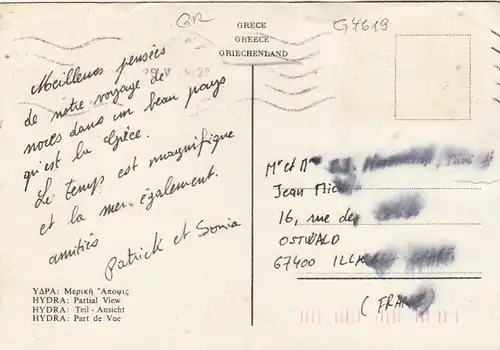 GR
G7619
GRECE
GREECE
GRIECHENLAND
Meilleures pensées
de notre voyage de
noces dans un beau pays
qu'est la Grèce.
Le temps est magnifique
et la mer également.
amitiés
Patrick et Sonia
Mr et M
Jean Mic
16, rue de
OSTWALD
67400 ILLK
(FRANCE)
ΥΔΡΑ: Μερική Ἄποψις
HYDRA: Partial View
HYDRA: Teil - Ansicht
HYDRA: Part de Vue